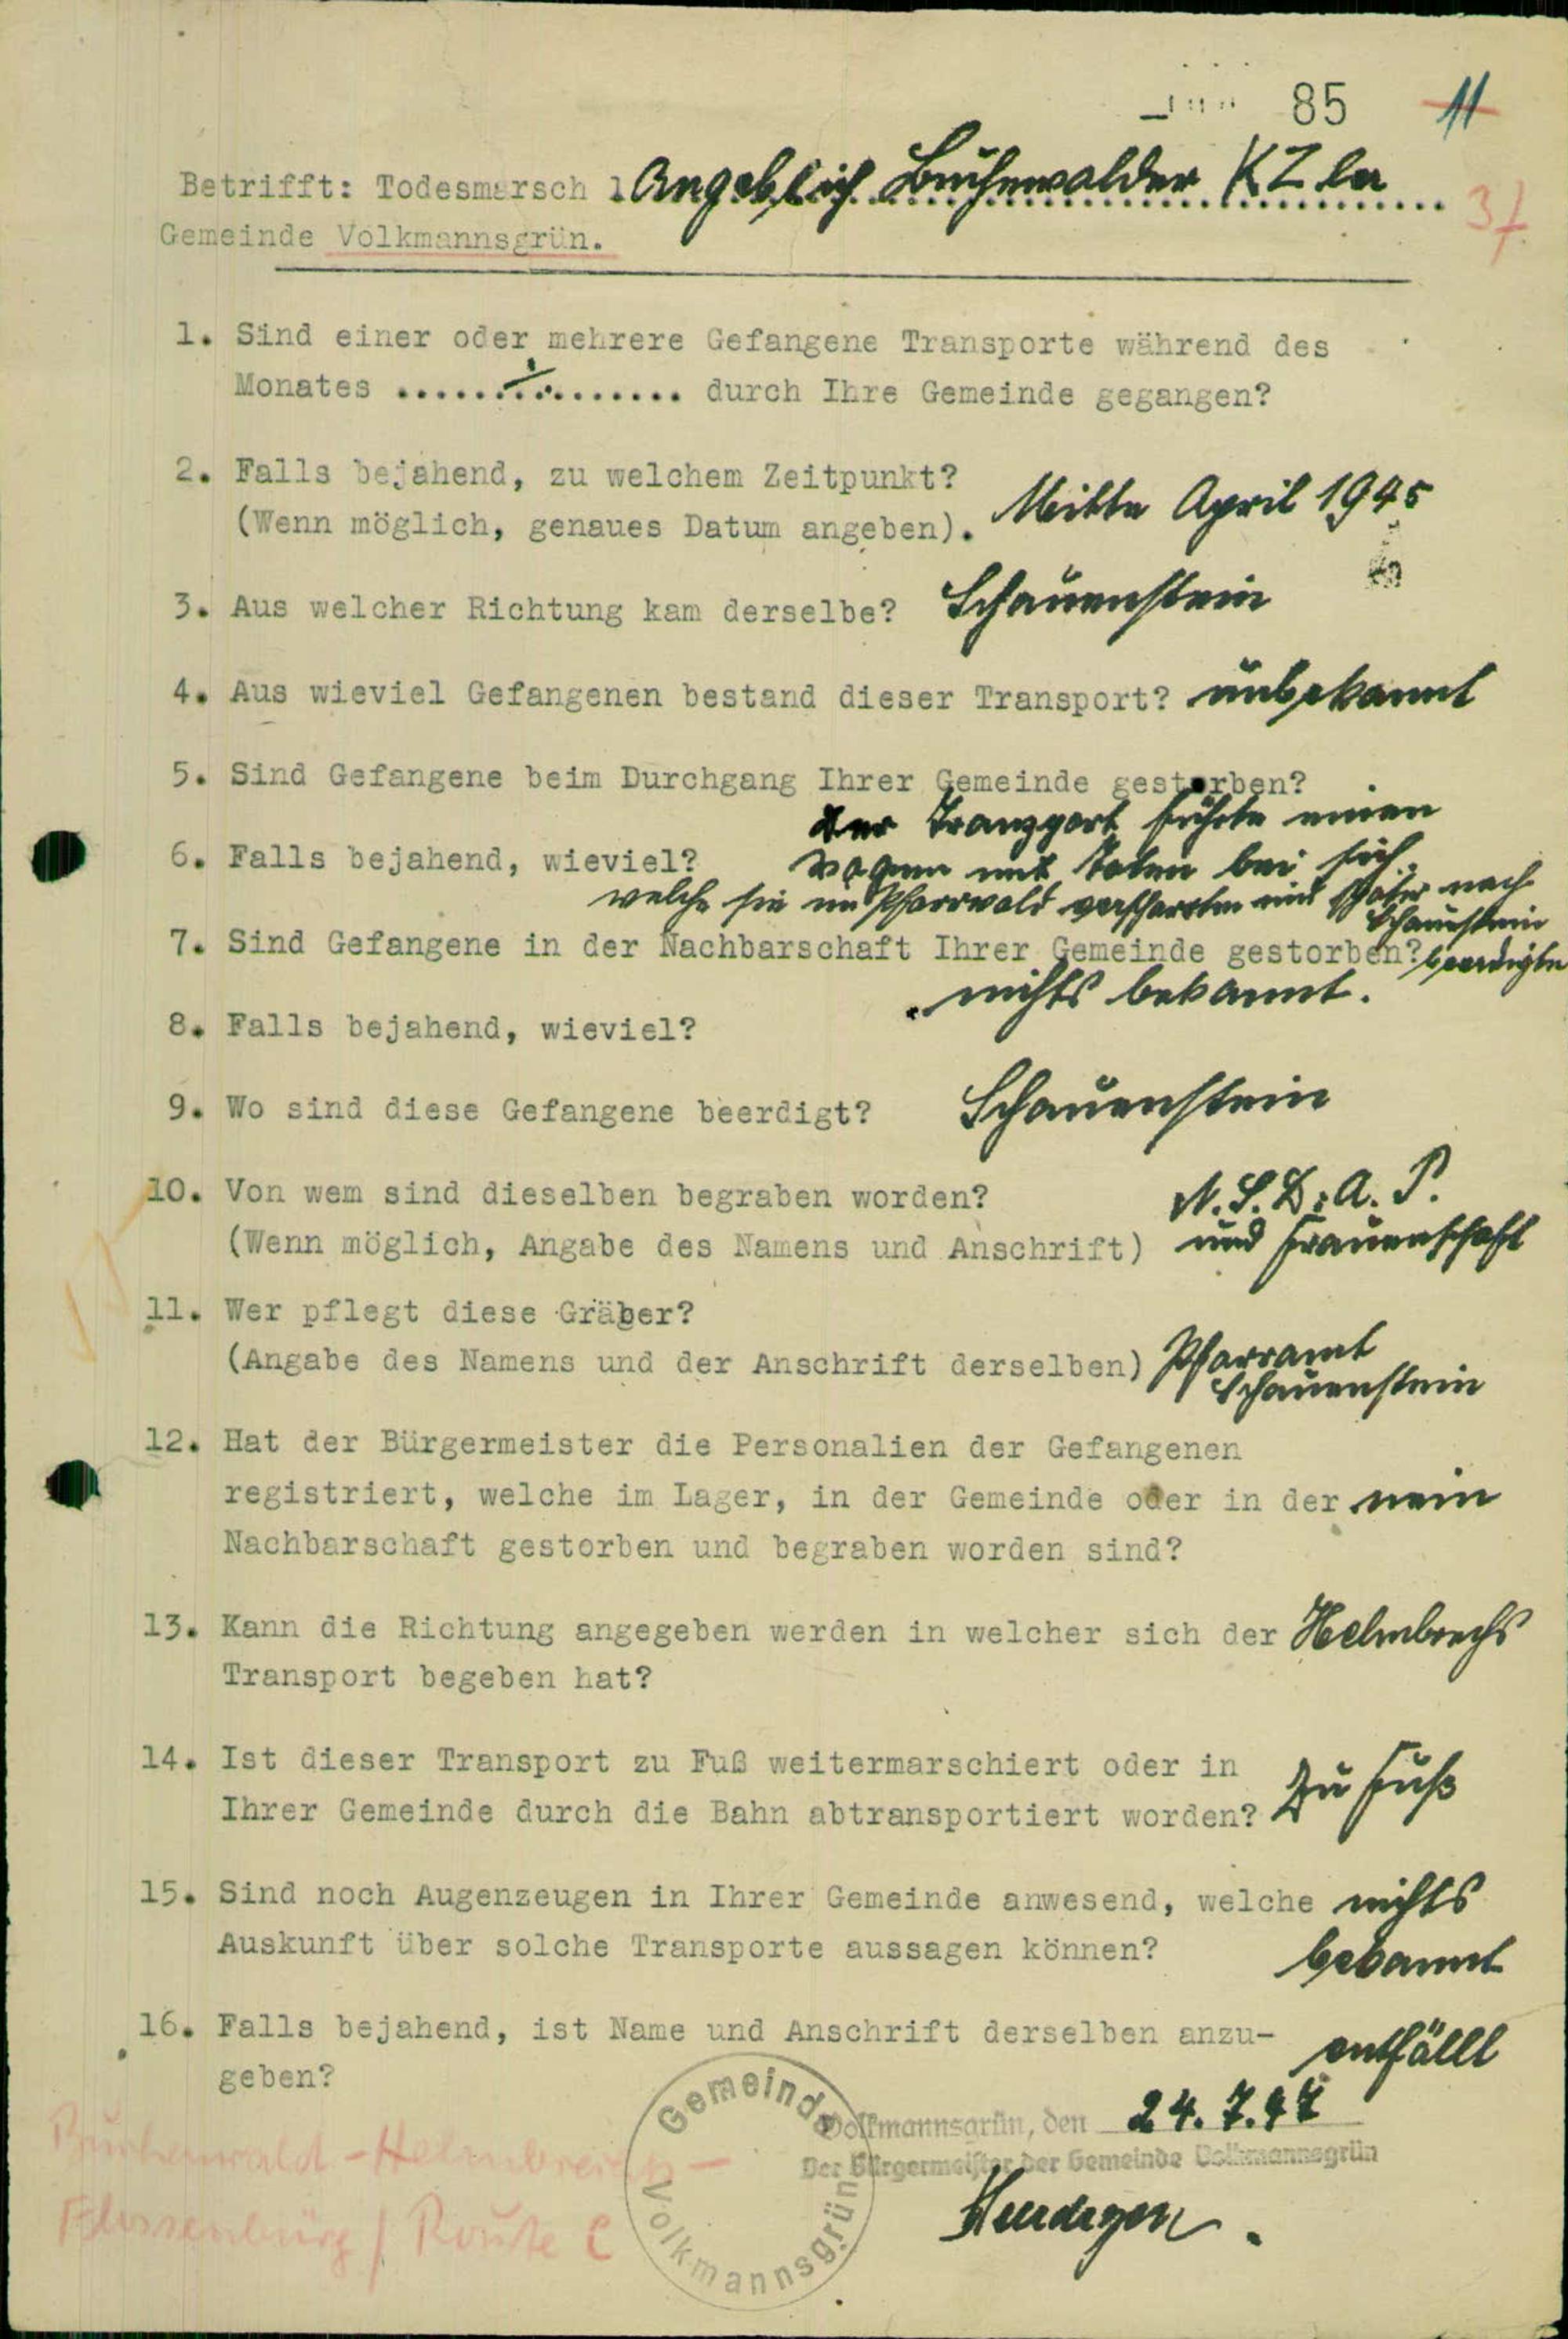 85 11
Betrifft: Todesmarsch 1 Angeblich Buchenwalder KZler
37
Gemeinde Volkmannsgrün.
1. Sind einer oder mehrere Gefangene Transporte während des
Monates ...... ÷ ....... durch Ihre Gemeinde gegangen?
2. Falls bejahend, zu welchem Zeitpunkt?
(Wenn möglich, genaues Datum angeben). Mitte April 1945
3. Aus welcher Richtung kam derselbe? Schauenstein
4. Aus wieviel Gefangenen bestand dieser Transport? unbekannt
5. Sind Gefangene beim Durchgang Ihrer Gemeinde gestorben?
der Tranzport führte einen
6. Falls bejahend, wieviel? Wagen mit Toten bei sich.
welche sie im Pfarrwald verscharrten und später nach
Schauenstein
7. Sind Gefangene in der Nachbarschaft Ihrer Gemeinde gestorben? beerdigte
nichts bekannt.
8. Falls bejahend, wieviel?
9. Wo sind diese Gefangene beerdigt? Schauenstein
10. Von wem sind dieselben begraben worden? N.S.D.A.P.
(Wenn möglich, Angabe des Namens und Anschrift) und Frauenschaft
11. Wer pflegt diese Gräber?
(Angabe des Namens und der Anschrift derselben) Pfarramt
Schauenstein
12. Hat der Bürgermeister die Personalien der Gefangenen
registriert, welche im Lager, in der Gemeinde oder in der nein
Nachbarschaft gestorben und begraben worden sind?
13. Kann die Richtung angegeben werden in welcher sich der Helmbrechs
Transport begeben hat?
14. Ist dieser Transport zu Fuß weitermarschiert oder in
Ihrer Gemeinde durch die Bahn abtransportiert worden? Zu Fuß
15. Sind noch Augenzeugen in Ihrer Gemeinde anwesend, welche nichts
Auskunft über solche Transporte aussagen können? bekannt
16. Falls bejahend, ist Name und Anschrift derselben anzu-
geben? entfällt
Gemeinde
Volkmannsgrün
Volkmannsgrün, den 24.7.47
Der Bürgermeister der Gemeinde Volkmannsgrün
Buchenwald - Helmbrechts -
Flossenbürg / Route C